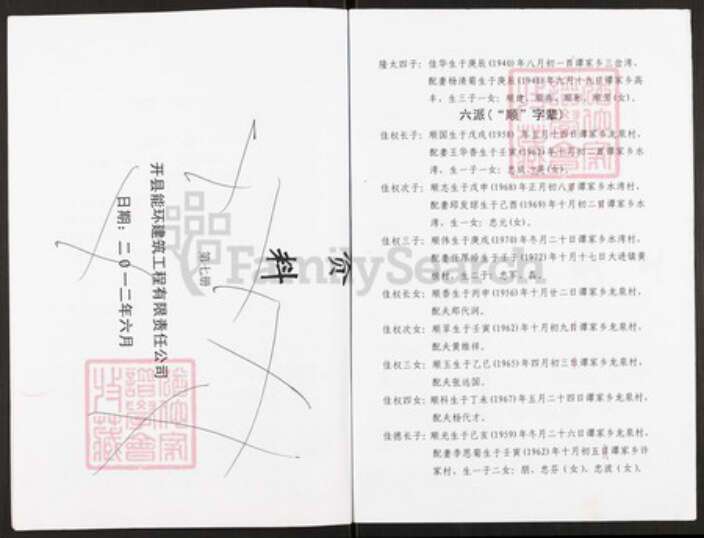 资料
第七册
开县能环建筑工程有限责任公司
日期：二0一二年六月
FamilySearch
隆太四子：佳华生于庚辰(1940)年八月初一首谭家乡三岔湾，
配妻杨清菊生于庚辰(1940)年九月十九日谭家乡高
丰，生三子一女：顺 (女)。
六派(“顺”字辈)
佳权长子：顺国生于戊戌(1958)年五月十四日谭家乡龙泉村，
配妻王华香生于壬寅(1962)年十月初二首谭家乡水
湾，生一子一女：忠 (女)。
佳权次子：顺志生于戊申(1968)年正月初八首谭家乡水湾村，
配妻邱发琼生于己酉(1969)年十月初二首谭家乡水
湾，生一女：忠元(女)。
佳权三子：顺伟生于庚戌(1970)年冬月二十日谭家乡水湾村，
配妻任 生于壬子(1972)年十月十七日大进镇黄
村，生二子：忠军、磊。
佳权长女：顺香生于丙申(1956)年十月廿二日谭家乡龙泉村，
配夫郑代润。
佳权次女：顺翠生于壬寅(1962)年十月初九首谭家乡龙泉村，
配夫黄维祥。
佳权三女：顺玉生于乙巳(1965)年四月初三首谭家乡龙泉村，
配夫张远国。
佳权四女：顺科生于丁未(1967)年五月二十四日谭家乡龙泉村，
配夫杨代才。
佳德长子：顺光生于己亥(1959)年冬月二十六日谭家乡龙泉村，
配妻李恩菊生于壬寅(1962)年十月初五首谭家乡许
家村，生一子二女：朋、忠芬(女)、忠波(女)。